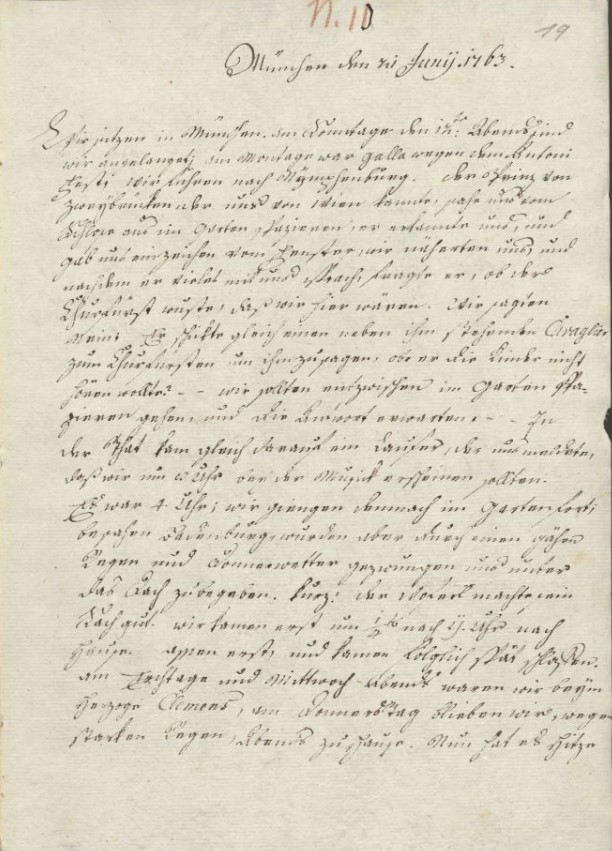 N. 10
19
München den 21 Junij. 1763.
Wir sitzen in München. am Sonntage den 12te: Abends sind
wir angelangt; am Montage war galla wegen dem Antoni
Fest; wir fuhren nach Nymphenburg. Der Prinz von
Zweybrücken der uns von Wien kannte, sahe uns vom
Schlosse aus im Garten spazieren, er erkannte uns, und
gab uns ein zeichen vom Fenster, wir näherten uns, und
nachdem er vieles mit uns sprach, fragte er, ob der
Churfürst wuste, daß wir hier wären. Wir sagten
Nein; Er schickte gleich einen neben ihm stehenden Cavaglier
zum Churfürsten um ihm zu sagen, ob er die Kinder nicht
hören wollte? - - wir sollten entzwischen im Garten spa-
zieren gehen, und die Antwort erwarten. - - In
der That kam gleich darauf ein Laufer, der uns meldete,
daß wir um 8 Uhr bey der Musick erscheinen sollten.
Es war 4 Uhr; wir giengen demnach im Garten fort;
besahen Badenburg, wurden aber durch einen gähen
Regen und Donnerwetter gezwungen uns unter
das Tach zu begeben. kurz: der Woferl machte sein
Sach gut. wir kamen erst um nach 11. Uhr nach
Hause. assen erst, und kamen folglich spät schlaffen.
am Erchtage und Mittwoch abends waren wir beym
Herzoge Clemens, am Donnerstag blieben wir, wegen
starken Regen, Abends zu Hause. Nun hat es Hitze